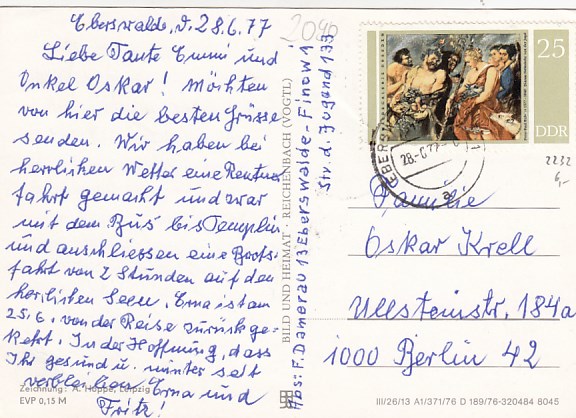 Eberswalde, d. 28.6.77
Liebe Tante Emmi und
Onkel Oskar! Möchten
von hier die besten Grüsse
senden. Wir haben bei
herrlichen Wetter eine Rentner
fahrt gemacht und zwar
mit dem Bus bis Templin
und anschliessen eine Boots-
fahrt von 2 Stunden auf den
herrlichen Seen. Erna ist am
25.6. von der Reise zurückge-
kehrt. In der Hoffnung, dass
Ihr gesund u. munter seit
verbleiben Erna und
Fritz!
Zeichnung: A. Hoppe, Leipzig
EVP 0,15 M
BILD UND HEIMAT · REICHENBACH (VOGTL)
Abs. F. Damerau 13 Eberswalde-Finow 1
Str. d. Jugend 133
2090
25
DDR
EBERS
28.-6.77
2232
6,-
Familie
Oskar Krell
Ullsteinstr. 184a
1000 Berlin 42
III/26/13 A1/371/76 D 189/76-320484 8045